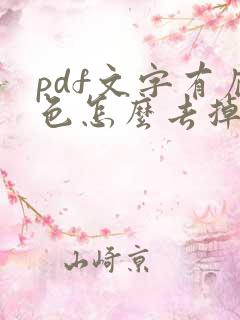 pdf文字有底
色怎麼去掉
山崎京